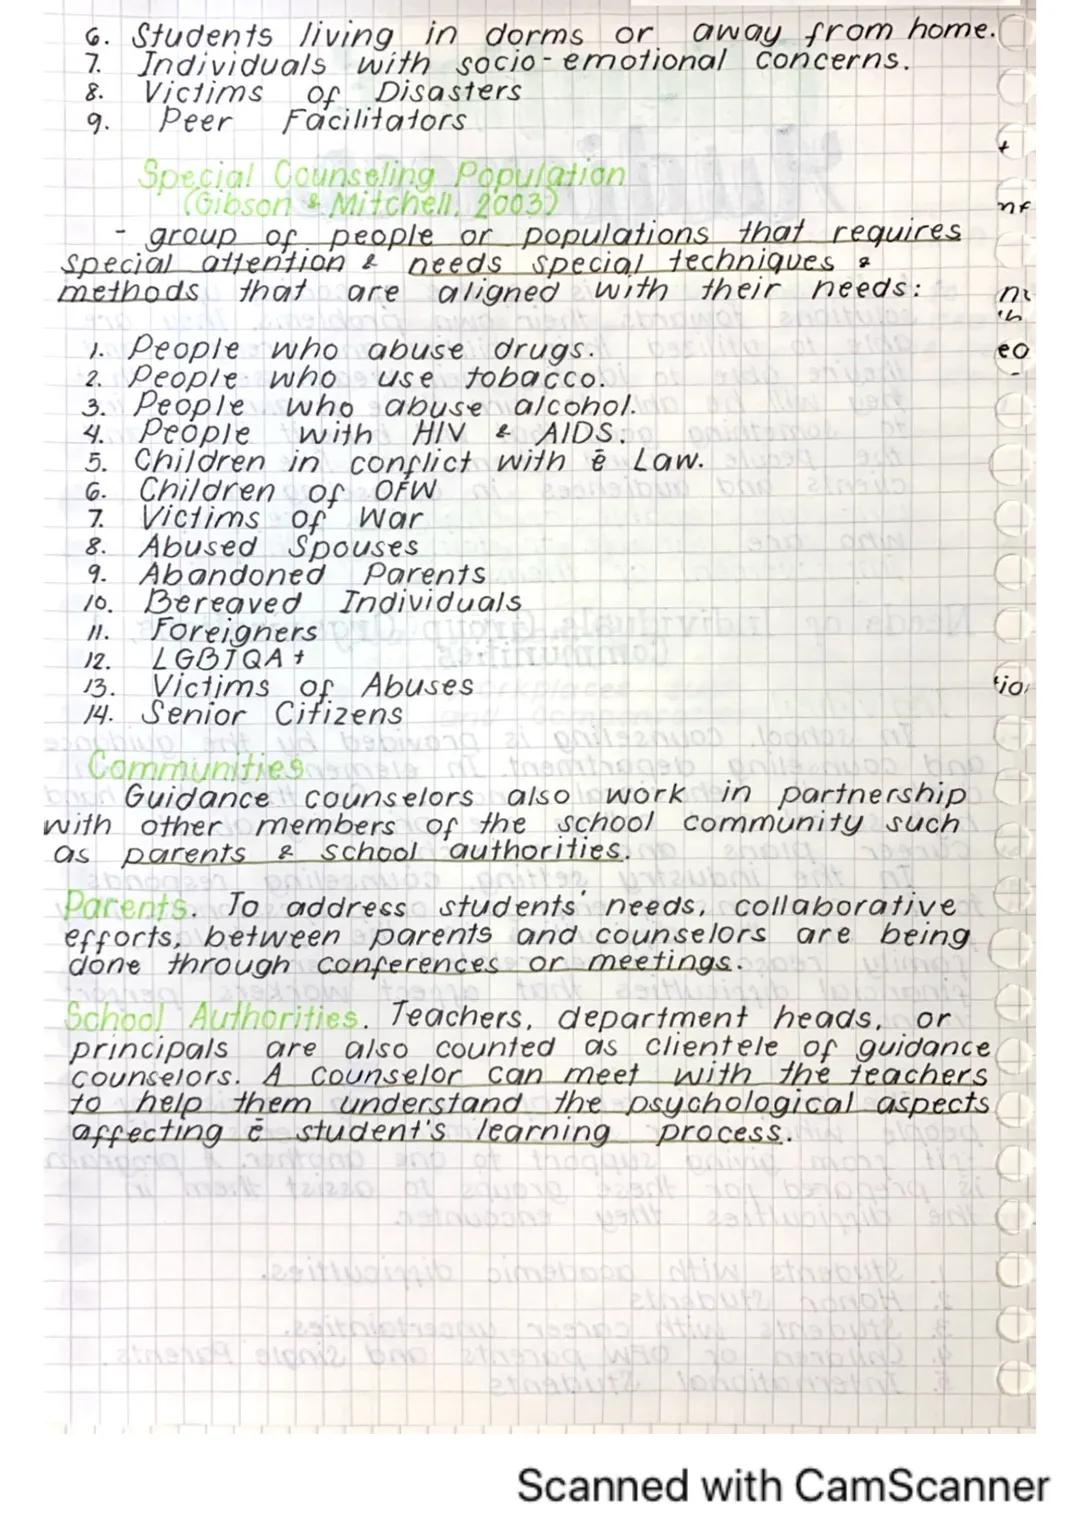 6. Students living in dorms or away from home.
7. Individuals with socio-emotional concerns.
8. Victims of Disasters
9. Peer Facilitators
Special Counseling Population
(Gibson & Mitchell, 2003)
- group of people or populations that requires
special attention & needs special techniques &
methods that are aligned with their needs:
1. People who abuse drugs.
2. People who use tobacco.
3. People who abuse alcohol.
4. People with HIV & AIDS.
5. Children in conflict with ē Law.
6. Children of OFW
7. Victims of War
8. Abused Spouses
9. Abandoned Parents
10. Bereaved Individuals
11. Foreigners
12. LGBTQA+
13. Victims of Abuses
14. Senior Citizens
Communities
Guidance counselors also work in partnership
with other members of the school community such
as parents & school authorities.
Parents. To address students' needs, collaborative
efforts, between parents and counselors are being
done through conferences or meetings.
School Authorities. Teachers, department heads, or
principals are also counted as clientele of guidance
counselors. A counselor can meet with the teachers
to help them understand the psychological aspects
affecting ē student's learning process.
Scanned with CamScanner